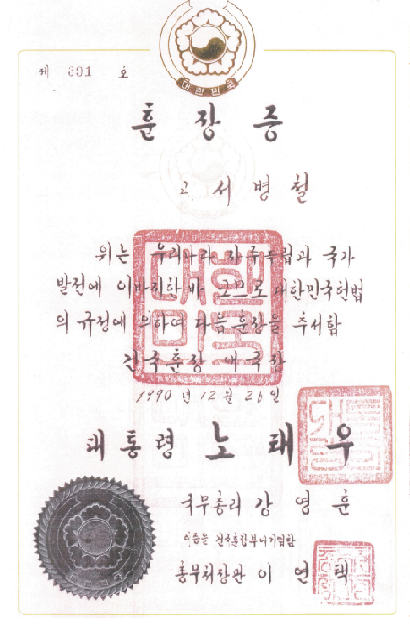 대한민국
제 691 호
훈장증
고 서병철
위는 우리나라 자주독립과 국가
발전에 이바지한바 크므로 대한민국헌법
의 규정에 의하여 다음 훈장을 추서함
건국훈장 애국장
1990 년 12 월 26 일
대통령 노태우
국무총리 강영훈
이 증을 건국훈장부에 기입함
총무처장관 이연택